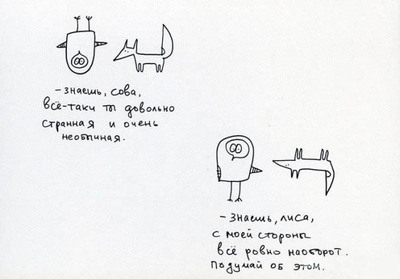 - Знаешь, сова,
всё-таки ты довольно
странная и очень
необычная.
- Знаешь, лиса,
с моей стороны
всё ровно наоборот.
Подумай об этом.